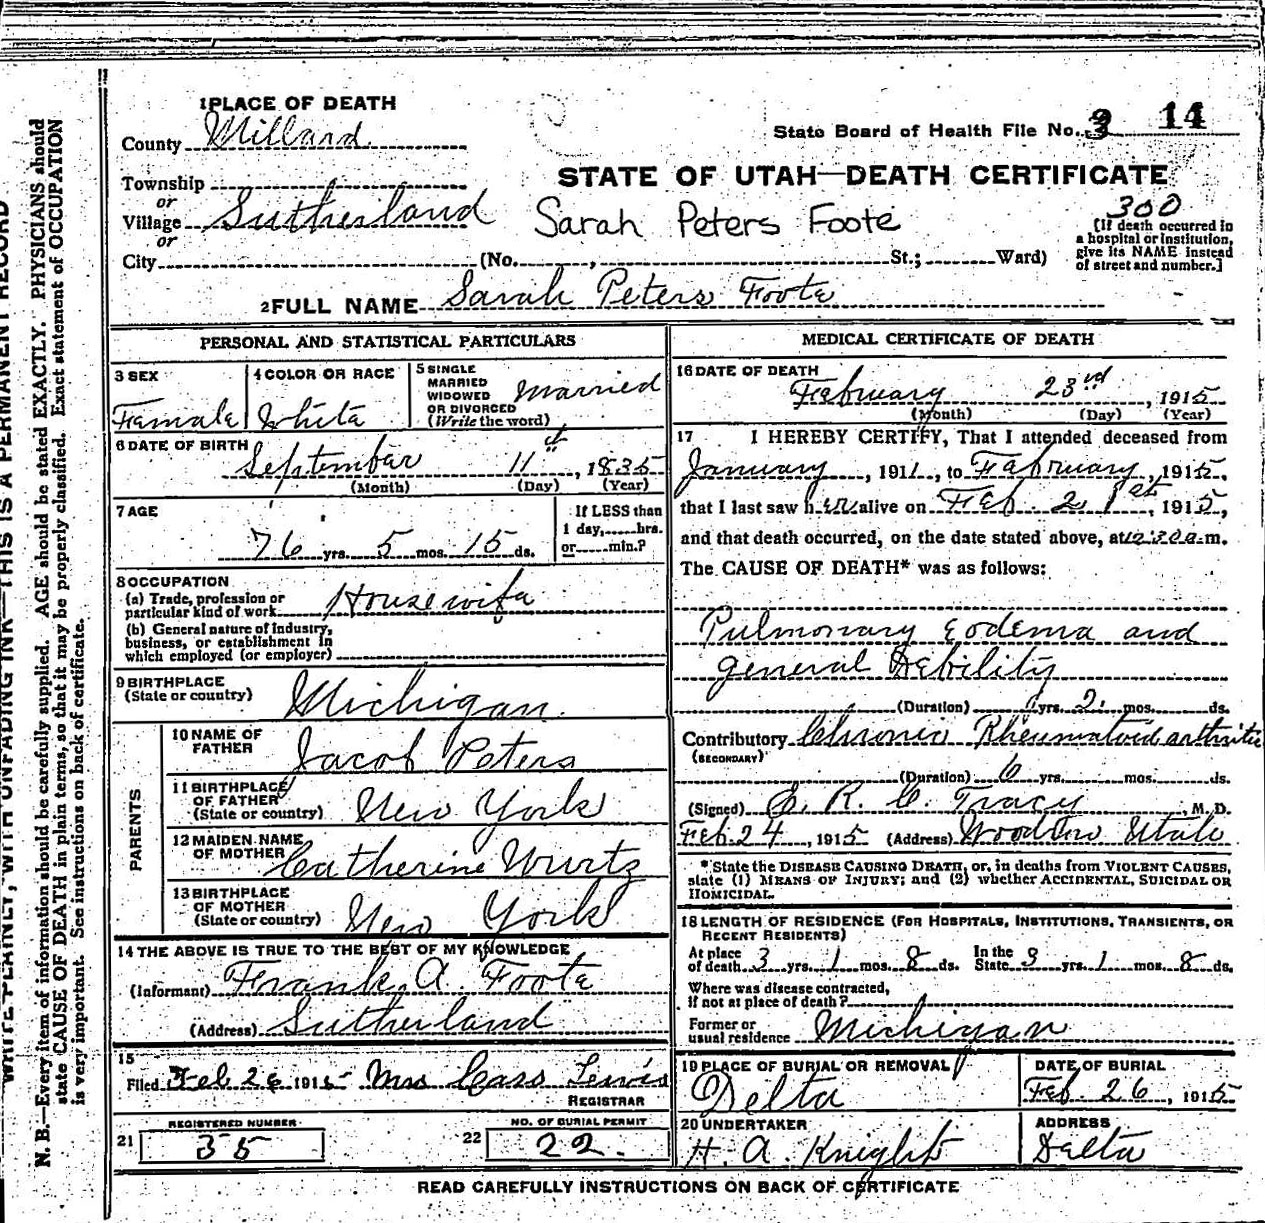 1 PLACE OF DEATH
County Millard.
State Board of Health File No. 14
Township
STATE OF UTAH—DEATH CERTIFICATE
or
Village Sutherland
Sarah Peters Foote
300
or
City (No. , St.; Ward)
[If death occurred in
a hospital or institution,
give its NAME instead
of street and number.]
2 FULL NAME Sarah Peters Foote
PERSONAL AND STATISTICAL PARTICULARS
3 SEX
Female
4 COLOR OR RACE
White
5 SINGLE
MARRIED
WIDOWED
OR DIVORCED
(Write the word)
Married
6 DATE OF BIRTH
September 11th, 1835
(Month) (Day) (Year)
7 AGE
76 yrs. 5 mos. 15 ds.
If LESS than
1 day, hrs.
or min.?
8 OCCUPATION
(a) Trade, profession or
particular kind of work Housewife
(b) General nature of industry,
business, or establishment in
which employed (or employer)
9 BIRTHPLACE
(State or country) Michigan.
PARENTS
10 NAME OF
FATHER Jacob Peters
11 BIRTHPLACE
OF FATHER
(State or country) New York
12 MAIDEN NAME
OF MOTHER Catherine Wurtz
13 BIRTHPLACE
OF MOTHER
(State or country) New York
14 THE ABOVE IS TRUE TO THE BEST OF MY KNOWLEDGE
(Informant) Frank A. Foote
(Address) Sutherland
15
Filed Feb. 26 1915 Mrs Cass Lewis
REGISTRAR
REGISTERED NUMBER
21 35
NO. OF BURIAL PERMIT
22 22.
MEDICAL CERTIFICATE OF DEATH
16 DATE OF DEATH
February 23rd, 1915
(Month) (Day) (Year)
17 I HEREBY CERTIFY, That I attended deceased from
January, 1911, to February, 1915,
that I last saw her alive on Feb. 21st, 1915,
and that death occurred, on the date stated above, at 12:20 a. m.
The CAUSE OF DEATH* was as follows:
Pulmonary Eodema and
general Debility
(Duration) yrs. 2. mos. ds.
Contributory Chronic Rheumatoid arthritis
(SECONDARY)
(Duration) 6 yrs. mos. ds.
(Signed) E. R. C. Tracy M. D.
Feb. 24, 1915 (Address) Woodrow Utah
*State the DISEASE CAUSING DEATH, or, in deaths from VIOLENT CAUSES,
state (1) MEANS OF INJURY; and (2) whether ACCIDENTAL, SUICIDAL OR
HOMICIDAL.
18 LENGTH OF RESIDENCE (FOR HOSPITALS, INSTITUTIONS, TRANSIENTS, OR
RECENT RESIDENTS)
At place
of death 3 yrs. 1 mos. 8 ds. In the
State 3 yrs. 1 mos. 8 ds.
Where was disease contracted,
if not at place of death?
Former or
usual residence Michigan
19 PLACE OF BURIAL OR REMOVAL
Delta
DATE OF BURIAL
Feb. 26, 1915
20 UNDERTAKER
H. A. Knight
ADDRESS
Delta
READ CAREFULLY INSTRUCTIONS ON BACK OF CERTIFICATE
WRITE PLAINLY, WITH UNFADING INK—THIS IS A PERMANENT RECORD
N. B.—Every item of information should be carefully supplied. AGE should be stated EXACTLY. PHYSICIANS should
state CAUSE OF DEATH in plain terms, so that it may be properly classified. Exact statement of OCCUPATION
is very important. See instructions on back of certificate.